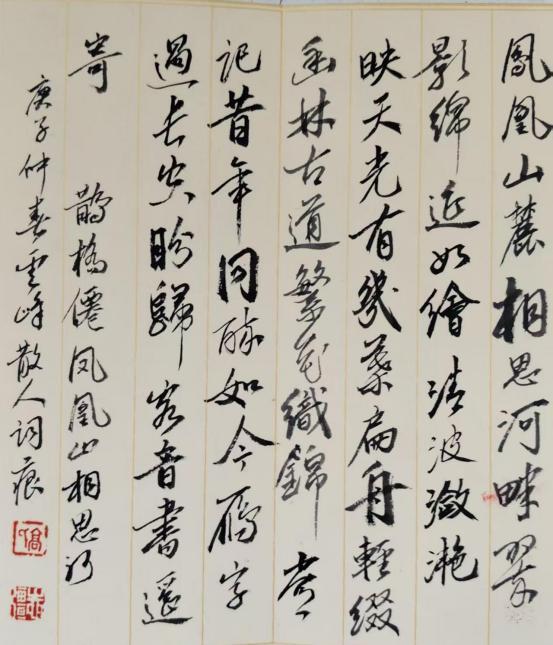 鳳凰山麓相思河畔翠
影綿延如繪清波瀲灧
映天光有幾葉扁舟輕綴
幽林古道繁花織錦 常
記昔年同醉如今雁字
過長空盼歸客音書遥
寄 鵲橋僊凤凰山相思河
庚子仲春雲峰散人詞痕